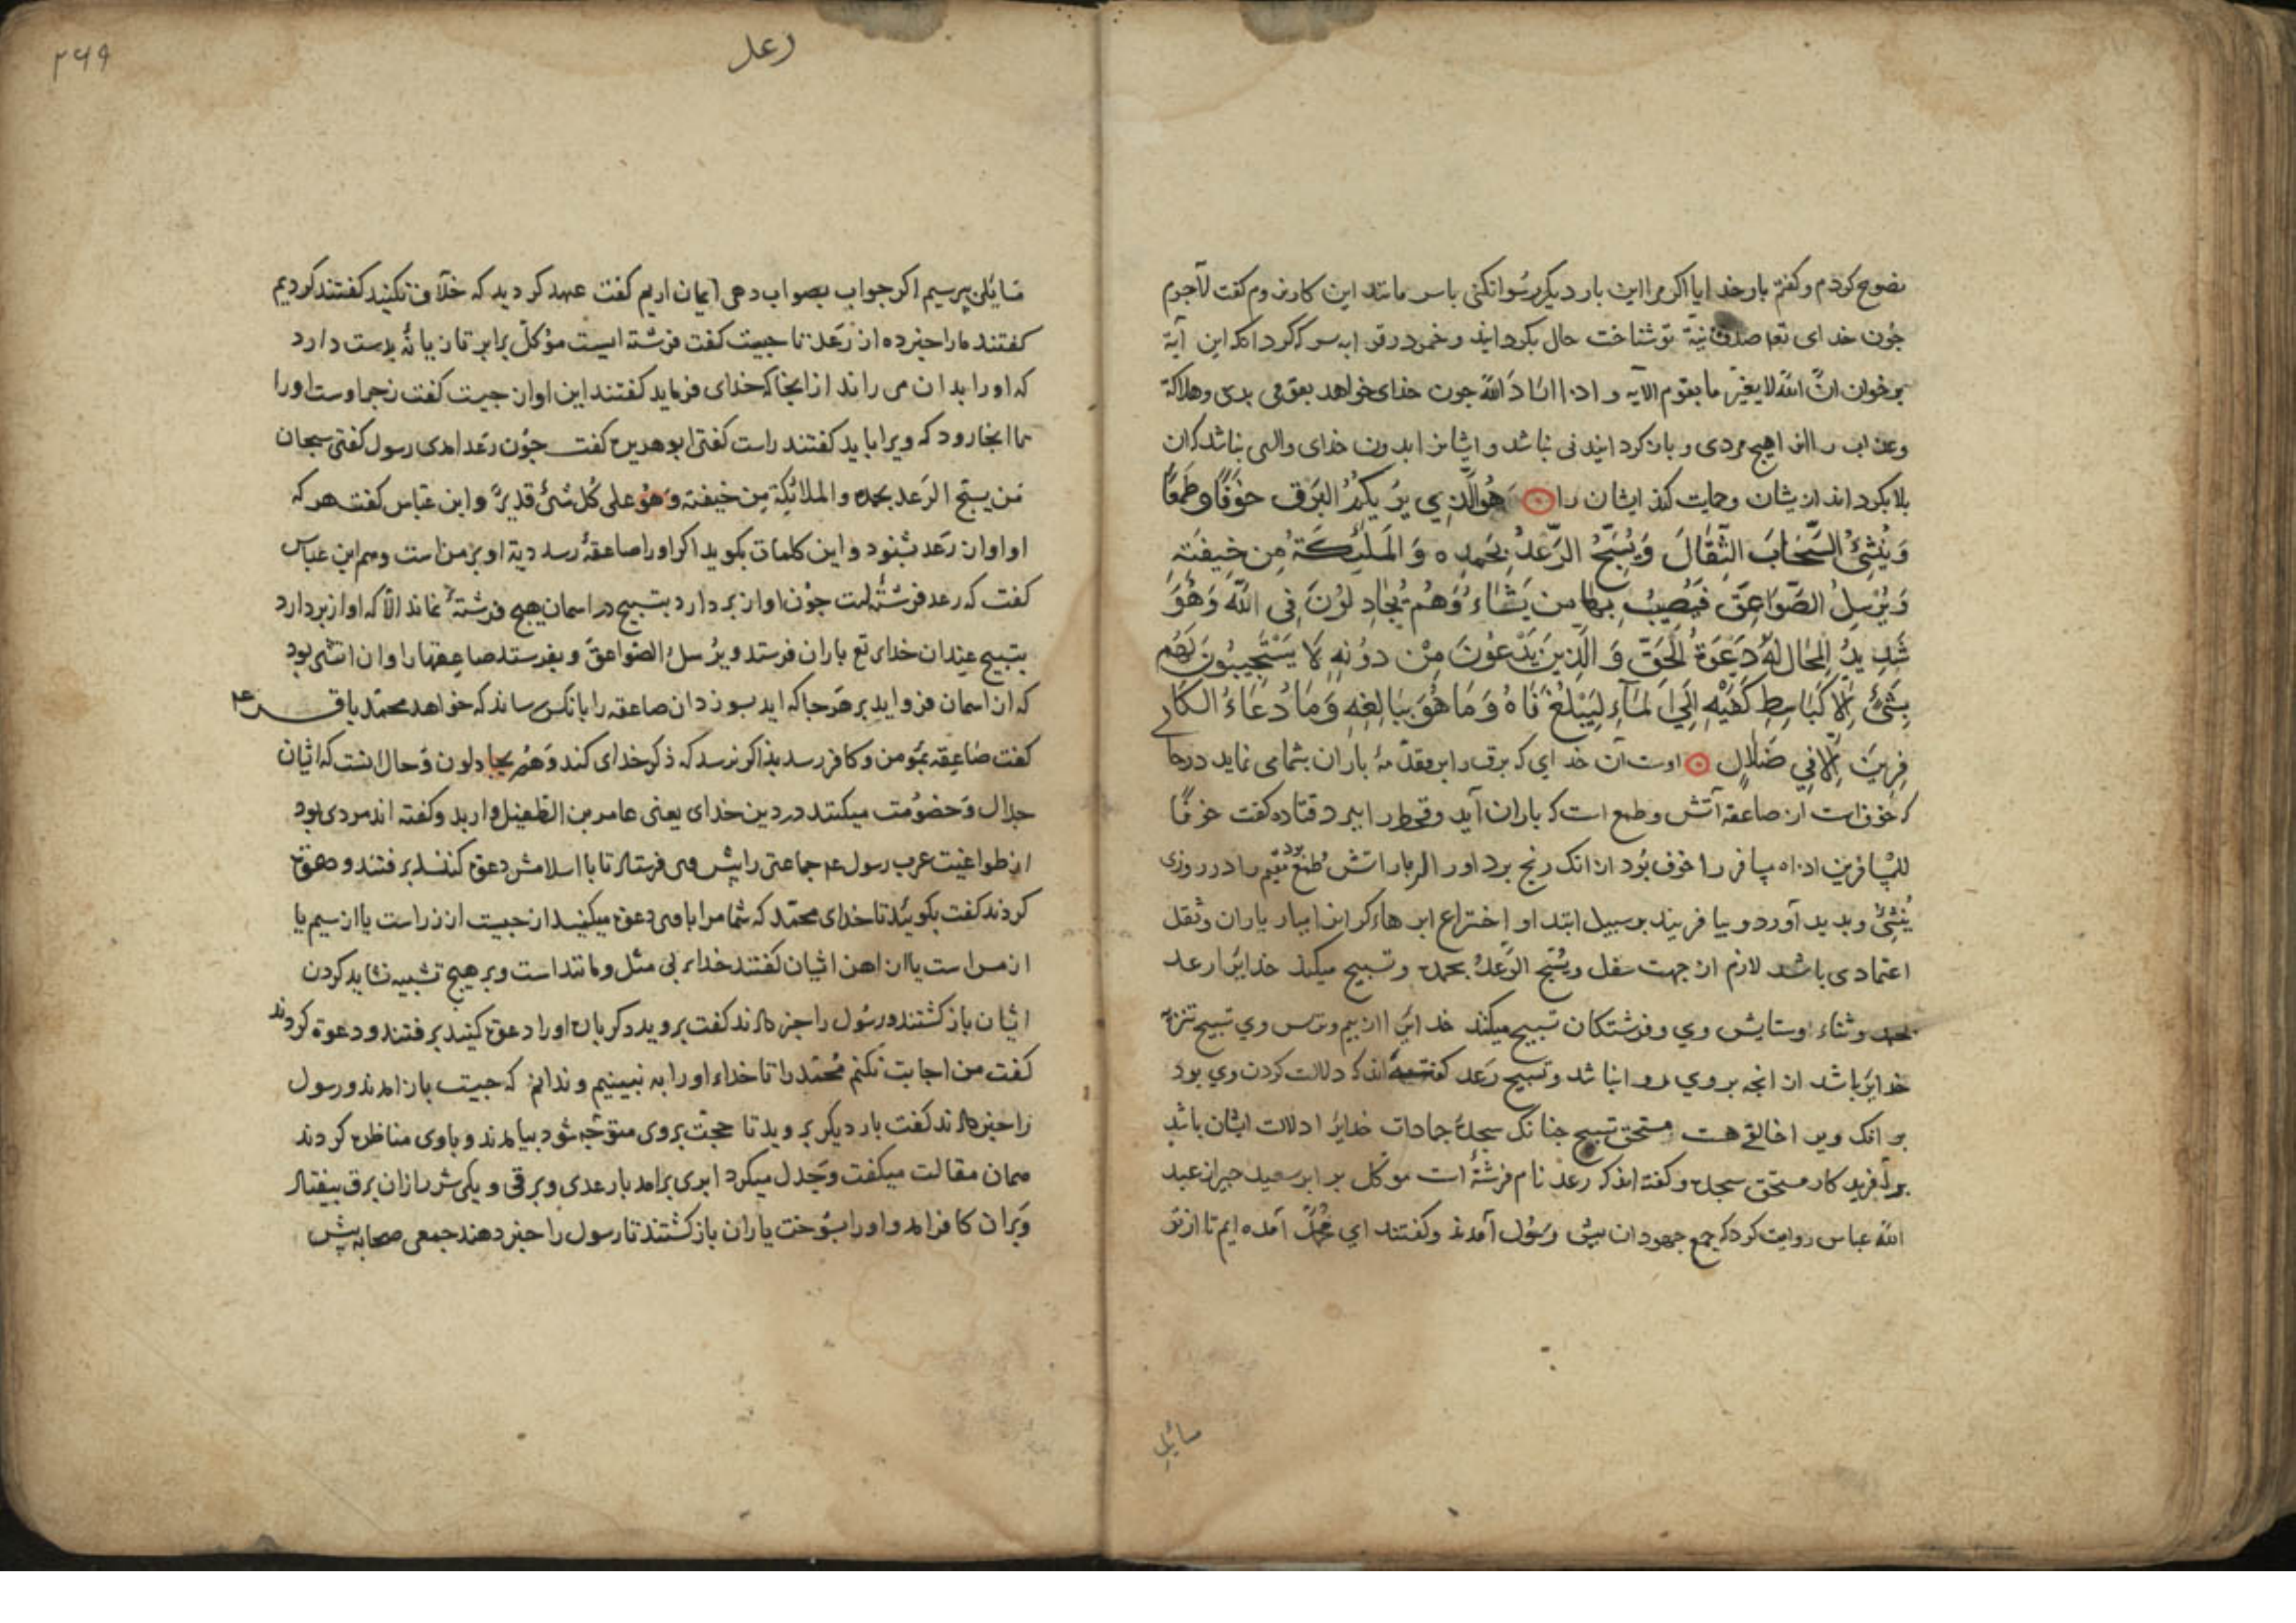 نصوح کردم و کفتم بار خدایا اکر مرا این بار دیکر رسوا نکنی باسر مانند این کار نروم کفت لاجرم
جون خدای تعا صدق نیة تو شناخت حال بکردانید و خمر در قرابه سرکه کرد انکه این آیة
برخوان انّ الله لا یغیّر ما بقوم الآیه و اذا اراد الله جون خدای خواهد بقومی بدی و هلاکة
وعذاب را انرا هیج مردی و بازکردانیدنی نباشد و ایشانرا بدون خدای والیی نباشد که ان
بلا بکرداند ازیشان و حمایت کند ایشان را هُوَ الَّذِي يُرِيكُمُ البَرقَ خَوفًا وَطَمَعًا
وَيُنشِئُ السَّحَابَ الثِّقَالَ وَيُسَبِّحُ الرَّعْدُ بِحَمدِه وَالمَلَئِكَةُ مِن خِيفَتِهِ
وَيُرْسِلُ الصَّوَاعِقَ فَيُصِيبُ بِهَا مِن يَشَاءُ وَهُمْ يُجَادِلُونَ فِي اللّهِ وَهُوَ
شَدِيدُ المِحَال لَهُ دَعْوَةُ الحَقّ وَالَّذِينَ يَدْعُونَ مِنْ دُونِهِ لَا يَسْتَجِيبُونَ لَهُم
بِشَيْءٍ إِلَّا كَبَاسِطِ كَفَّيْهِ إِلَى المَآءِ لِيَبْلُغَ فَاهُ وَمَا هُوَ بِبَالِغِهِ وَمَا دُعَاءُ الكَا
فِرِينَ إِلَّا فِي ضَلَالٍ اوست آن خدایی که برق را بر مقدّمهٔ باران بشما می نماید درحا
که خوف است از صاعقهٔ آتش و طمع است که باران آید و قحط را ببرد قتاده کفت خوفًا
للمسافرین اذاه مسافر را خوف بود از انک رنج برد اورا از باراتش طمع بود مقیم را در روزی
یُنشِئُ و بدید آورد و بیافریند بر سبیل ابتدا و اختراع ابر هاء کرانرا ببار باران و ثقل
اعتمادی باشد لازم از جهت سفل ویُسَبّح الرَّعدُ بحمده و تسبیح میکند خدایرا رعد
بحمد و ثناء و ستایش وی و فرشتکان تسبیح میکند خدایرا از بیم و ترس وی تسبیح تنزیه
خدایرا باشد از انجه بروی روا نباشد و تسبیح رَعد کفته اند که دلالت کردن وی بود
بر انک ویرا خالقی هست مستحق تسبیح جنانک سجدهٔ جمادات خدایرا دلالت ایشان باشد
بر آفریدکار مستحق سجده و کفته اند که رعد نام فرشتهٔ است موکل بر ابر سعید جبیر از عبد
الله عباس روایت کرد که جمع جهودان بیش رسُول آمدند و کفتند ای مُحمّد آمده ایم تا از تو
سایل
۲۶۹
رعد
مَسایلی پرسیم اکر جواب بصواب دهی ایمان اریم کفت عهد کردید که خلاف نکنید کفتند کردیم
کفتند مارا خبر ده از رَعد تا جیست کفت فرشته ایست موکّل بر ابر تازیانهٔ بدست دارد
که اورا بدان می راند از انجا که خدای فرماید کفتند این اواز جیست کفت زجر اوست اورا
تا انجا رود که ویرا باید کفتند راست کفتی ابو هریره کفت جوُن رَعد امدی رسول کفتی سبحان
مَن یسبّح الرَعد بحمده والملائکة مِن خیفته وَهُوَ علی کُل شئ قدیرٌ و ابن عبّاس کفت هر که
او اواز رَعد بشنود و این کلمات بکوید اکر اورا صاعقهٔ رسد دیة او بر من است و هم ابن عباس
کفت که رعد فرشتهٔ است جوُن اواز بردارد بتسبیح در اسمان هیج فرشتهٔ نماند الّا که اواز بردارد
بتسبیح عند ان خدای تع باران فرستد ویُرسلُ الصّواعقَ و بفرستد صاعقها را و ان اتشی بود
که از اسمان فرو اید بر هَرجا که اید بسوزد ان صاعقه را بانکس رساند که خواهد محمّد باقر ع
کفت صَاعِقه بمؤمن و کافر رسد بذاکر نرسد که ذکر خدای کند وَهُم یجادلون وَ حال انست که ایشان
جدال وَ خصوُمت میکنند در دین خدای یعنی عامر بن الطفیل و اربد و کفته اند مردی بود
از طواغیت عرب رسول ع جماعتی را بیش وی فرستاد تا با اسلامش دعوة کنند برفتند و دعوة
کردند کفت بکوئید تا خدای محمّد که شما مرا با وی دعوة میکنید از جیست از زر است یا از سیم یا
از مس است یا از اهن ایشان کفتند خدای بی مثل و مانند است و بر هیج تشبیه نشاید کردن
ایشان بازکشتند و رسُول را خبر دادند کفت بروید دکر باره اورا دعوة کنید برفتند و دعوة کردند
کفت من اجابت نکنم مُحمّد را تا خداء اورا به نبینیم و ندانم که جیست باز امدند و رسول
را خبر دادند کفت بار دیکر بروید تا حجّت بروی متوَجّه شود بیامدند و باوی مناظره کردند
همان مقالت میکفت وَ جَدل میکرد ابری برامد با رعدی و برقی و یکی شرر ازان برق بیفتاد
وَ بران کافر امد و اورا بسوُخت یاران بازکشتند تا رسول را خبر دهند جمعی صحابه پیش